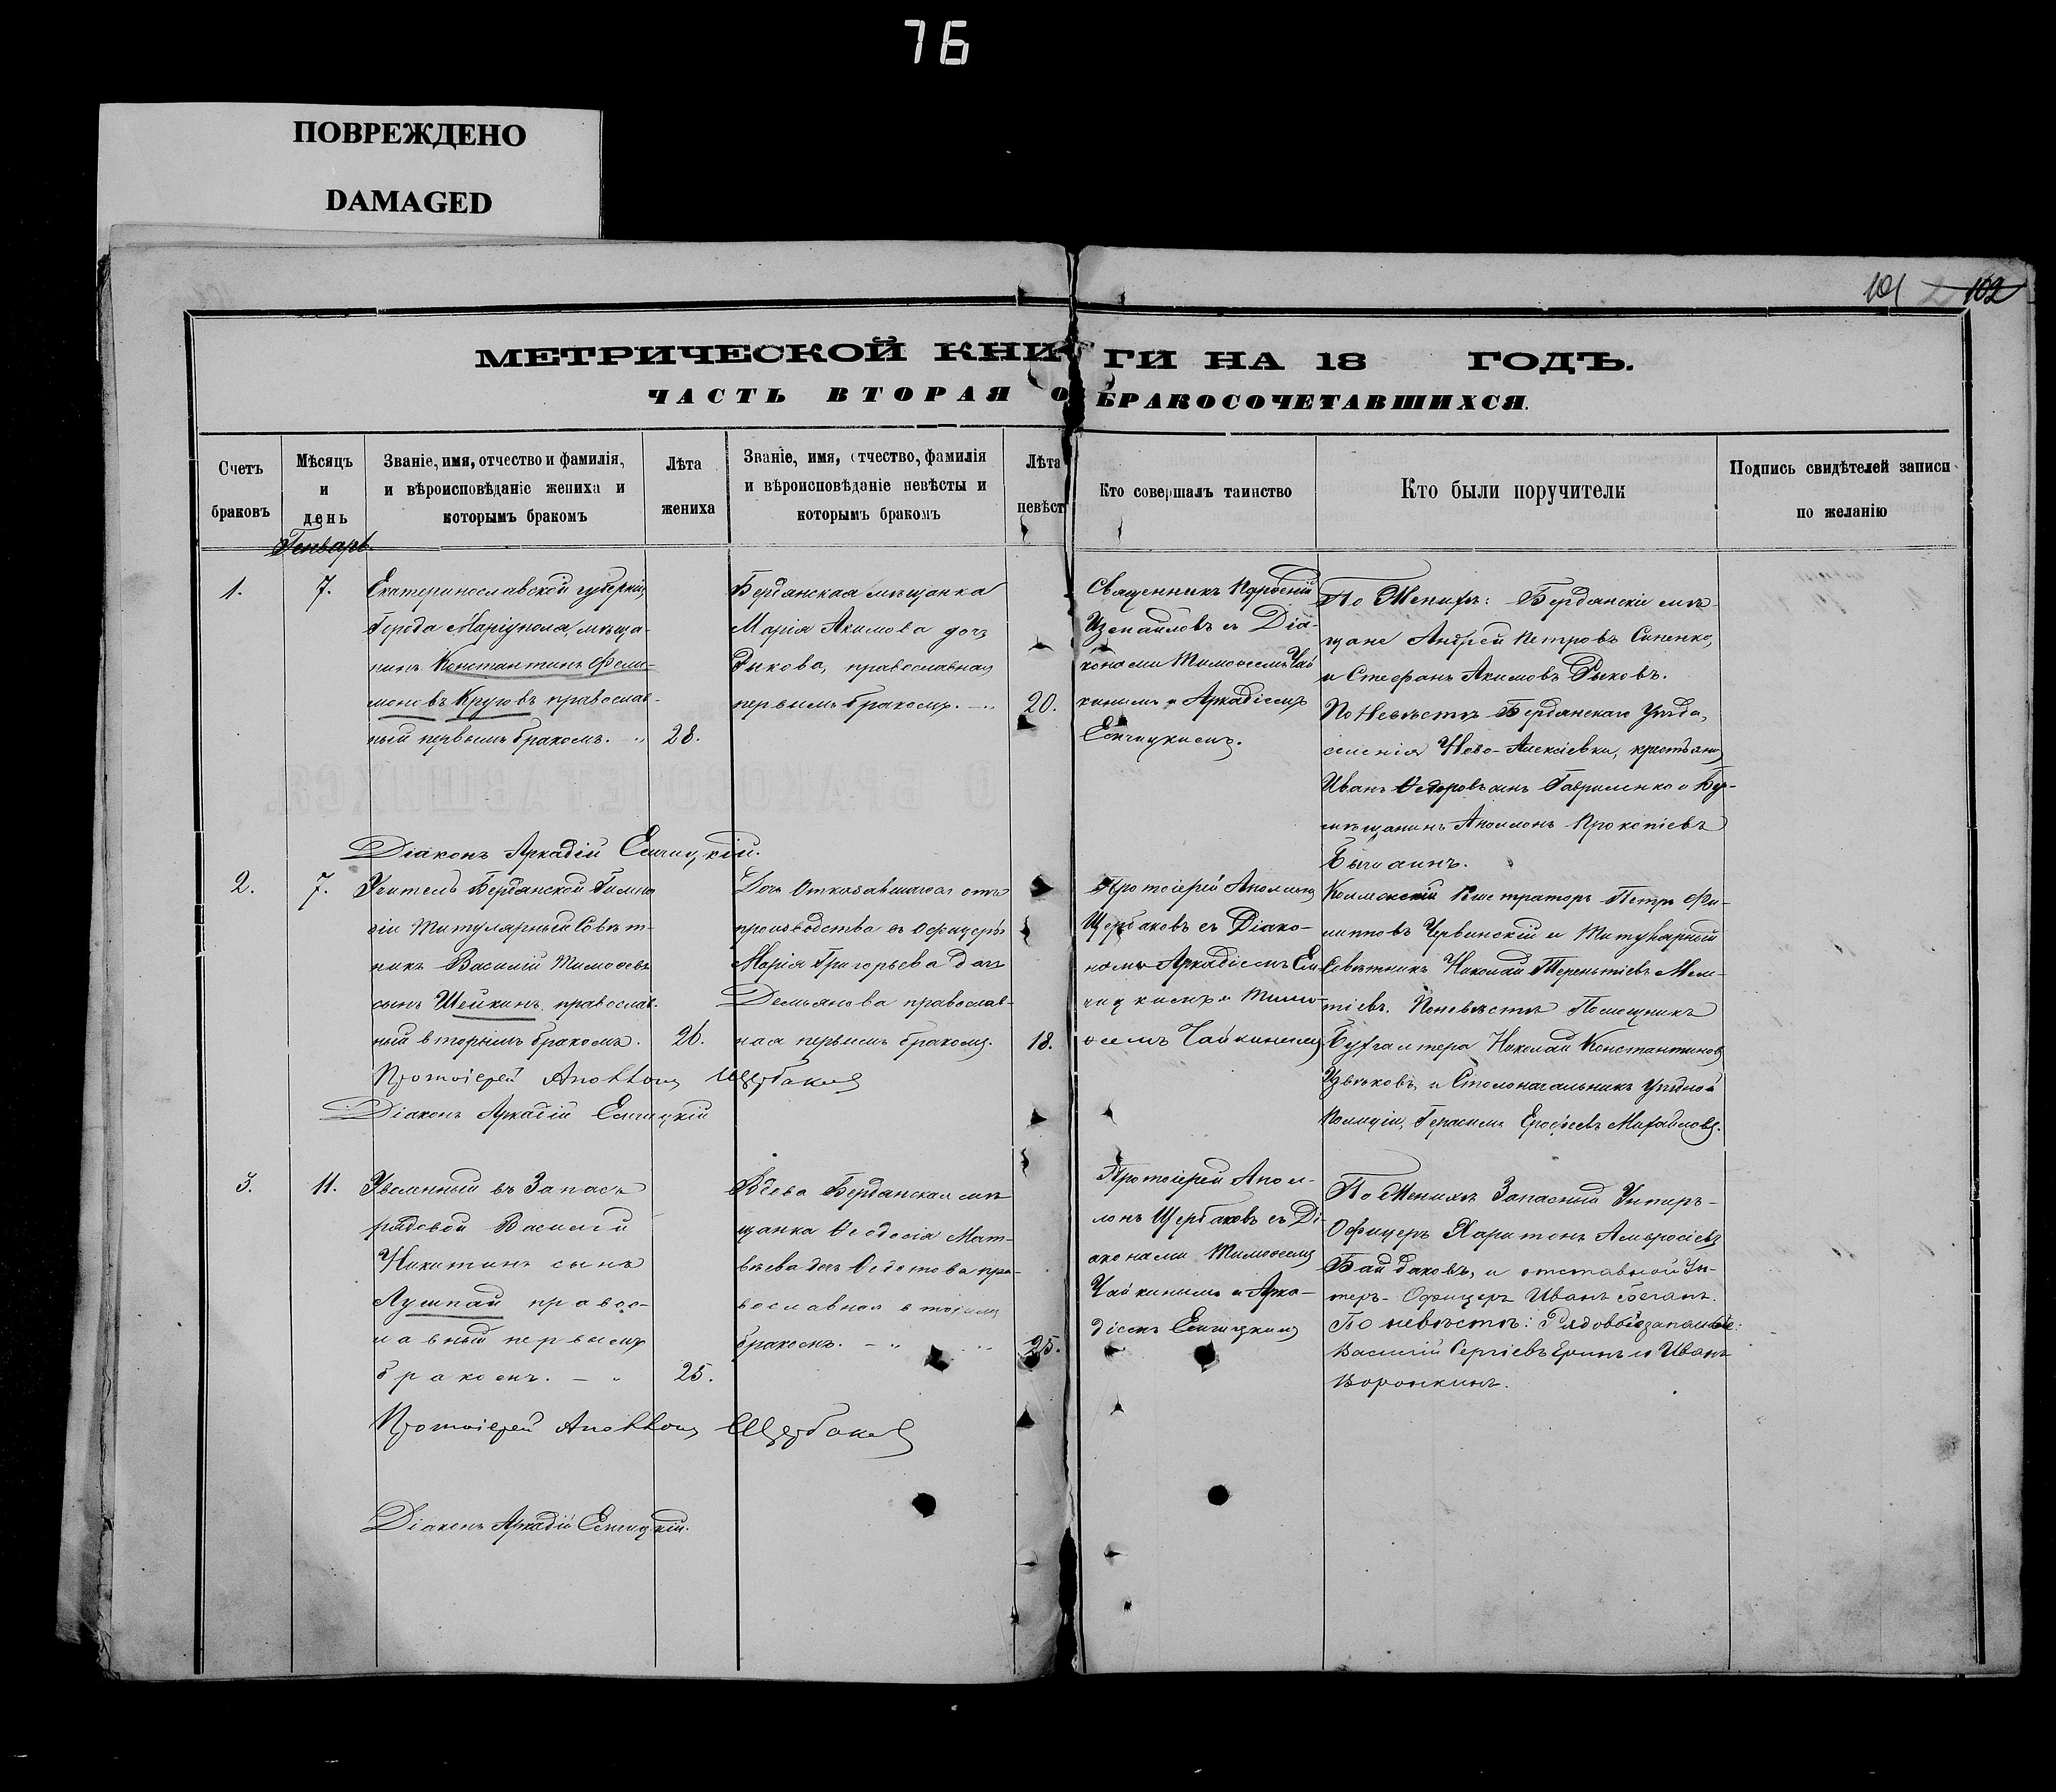 76
ПОВРЕЖДЕНО
DAMAGED
101 102
МЕТРИЧЕСКОЙ КНИГИ НА 18 ГОДЪ.
ЧАСТЬ ВТОРАЯ О БРАКОСОЧЕТАВШИХСЯ.
Счетъ браковъ
Мѣсяцъ и день
Званіе, имя, отчество и фамилія,
и вѣроисповѣданіе жениха и
которымъ бракомъ
Лѣта
жениха
Званіе, имя, отчество, фамилія
и вѣроисповѣданіе невѣсты и
которымъ бракомъ
Лѣта
невѣст
Кто совершалъ таинство
Кто были поручители
Подпись свидѣтелей записи
по желанію
Генварь
1.
7.
Екатеринославской губерніи
города Маріуполя, мѣща-
нинъ Константинъ Фели-
моновъ Круговъ православ-
ный первымъ бракомъ.
28.
Бердянская мѣщанка
Марія Акимова дочь
Рыкова, православная
первымъ бракомъ.
20.
Священникъ
Измаиловъ съ Діа-
конами Тимофеемъ Чай
кинымъ и Аркадіемъ
По Женихѣ: Бердянскіе мѣ-
щане Андрей Петровъ Синенко,
и Стефанъ Акимовъ Рыковъ.
По Невѣстѣ Бердянскаго Уѣзда,
селенія Ново-Алексіевки, крестьянинъ
Иванъ Ѳедоровъ сынъ Гавриленко и Бер-
мѣщанинъ Аполлонъ Прокопіевъ
Діаконъ Аркадій
2.
7.
Учитель Бердянской Гимна
зіи Титулярный Совѣт-
никъ Василій Тимофеевъ
сынъ Шейкинъ, православ-
ный вторымъ бракомъ.
26.
Дочь Отказавшагося отъ
производства въ Офицеры
Марія Григорьева дочь
Демьянова православ-
ная первымъ бракомъ.
18.
Протоіерей Аполлонъ
Щербаковъ съ Діако-
номъ Аркадіемъ
и Тимо-
ѳеемъ Чайкинымъ
Коллежскій Регистраторъ Петръ Фи-
липповъ Червинскій и Титулярный
Совѣтникъ Николай Терентіевъ Мели-
тіевъ. По невѣстѣ Помощникъ
Бухгалтера Николай Константиновъ
и Столоначальникъ Уѣздной
Полиціи, Герасимъ Ерофѣевъ Михайловъ.
Протоіерей Аполлонъ Щербаковъ
Діаконъ Аркадій
3.
11.
Уволенный въ Запасъ
рядовой Василій
Никитинъ сынъ
Лушпай правос-
лавный первымъ
бракомъ.
25.
Вдова Бердянская мѣ
щанка Ѳеодосія Мат-
вѣева дочь Ѳедотова пра-
вославная вторымъ
бракомъ.
25.
Протоіерей Апол-
лонъ Щербаковъ съ Ді-
аконами Тимофеемъ
Чайкинымъ и Арка-
діемъ
По Женихѣ Запасный Унтеръ-
Офицеръ Харитонъ Амвросіевъ
Байдаковъ, и отставной Ун-
теръ-Офицеръ Иванъ
По невѣстѣ: Рядовые запасные:
Василій Сергіевъ Еринъ и Иванъ
Воронкинъ.
Протоіерей Аполлонъ Щербаковъ
Діаконъ Аркадій